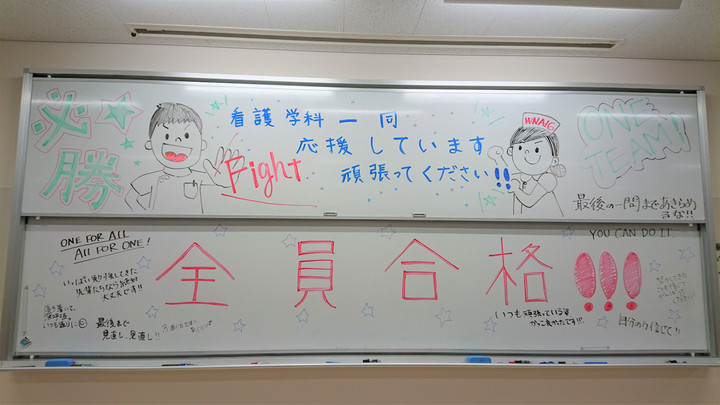 必
勝
看護学科一同
応援しています
頑張ってください!!
Fight
ONE
TEAM!
最後の一問まであきらめ
るな!!
ONE FOR ALL
ALL FOR ONE!
YOU CAN DO IT
全員合格!!!
いっぱい勉強してきた
先輩たちなら絶対
大丈夫です!!
落ち着いて、
深呼吸。
いつも通りに
最後まで
見直し、見直し!!
いつも頑張っている姿
かっこよかったです!!!
自分の力信じて!!